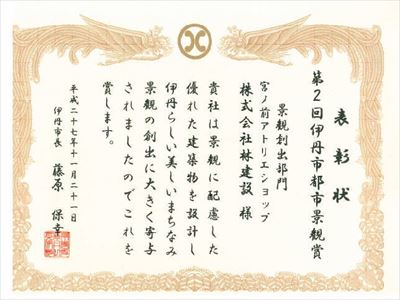 表彰状
第2回伊丹市都市景観賞
景観創出部門
宮ノ前アトリエショップ
株式会社林建設 様
貴社は景観に配慮した
優れた建築物を設計し
伊丹らしい美しいまちなみ
景観の創出に大きく寄与
されましたのでこれを
賞します。
平成二十七年十一月二十一日
伊丹市長 藤原 保幸